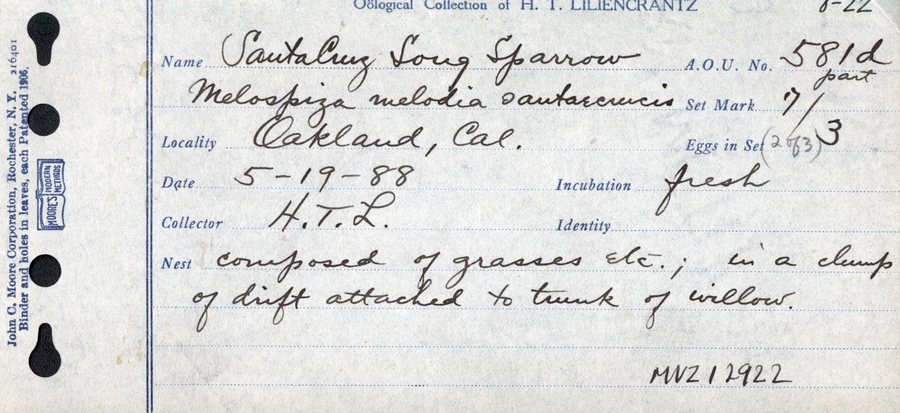 Oölogical Collection of H. T. LILIENCRANTZ
8-22
Name Santa Cruz Song Sparrow A.O.U. No. 581d
part
Melospiza melodia santaecrucis Set Mark 7/
Locality Oakland, Cal. Eggs in Set (2 of 3) 3
Date 5-19-88 Incubation fresh
Collector H.T.L. Identity
Nest composed of grasses etc.; in a clump
of drift attached to trunk of willow.
MVZ 12922
John C. Moore Corporation, Rochester, N. Y. 216401
Binder and holes in leaves, each Patented 1906.
MOORE'S MODERN METHODS